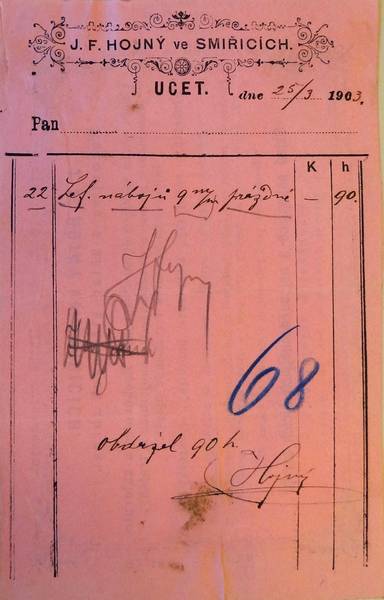 J. F. HOJNÝ ve SMIŘICÍCH.
UCET. dne 25/3 1903.
Pan
K h
22 Lef. nábojů 9 m/m prázdné — 90.
68
obdržel 90 h.
Hojný